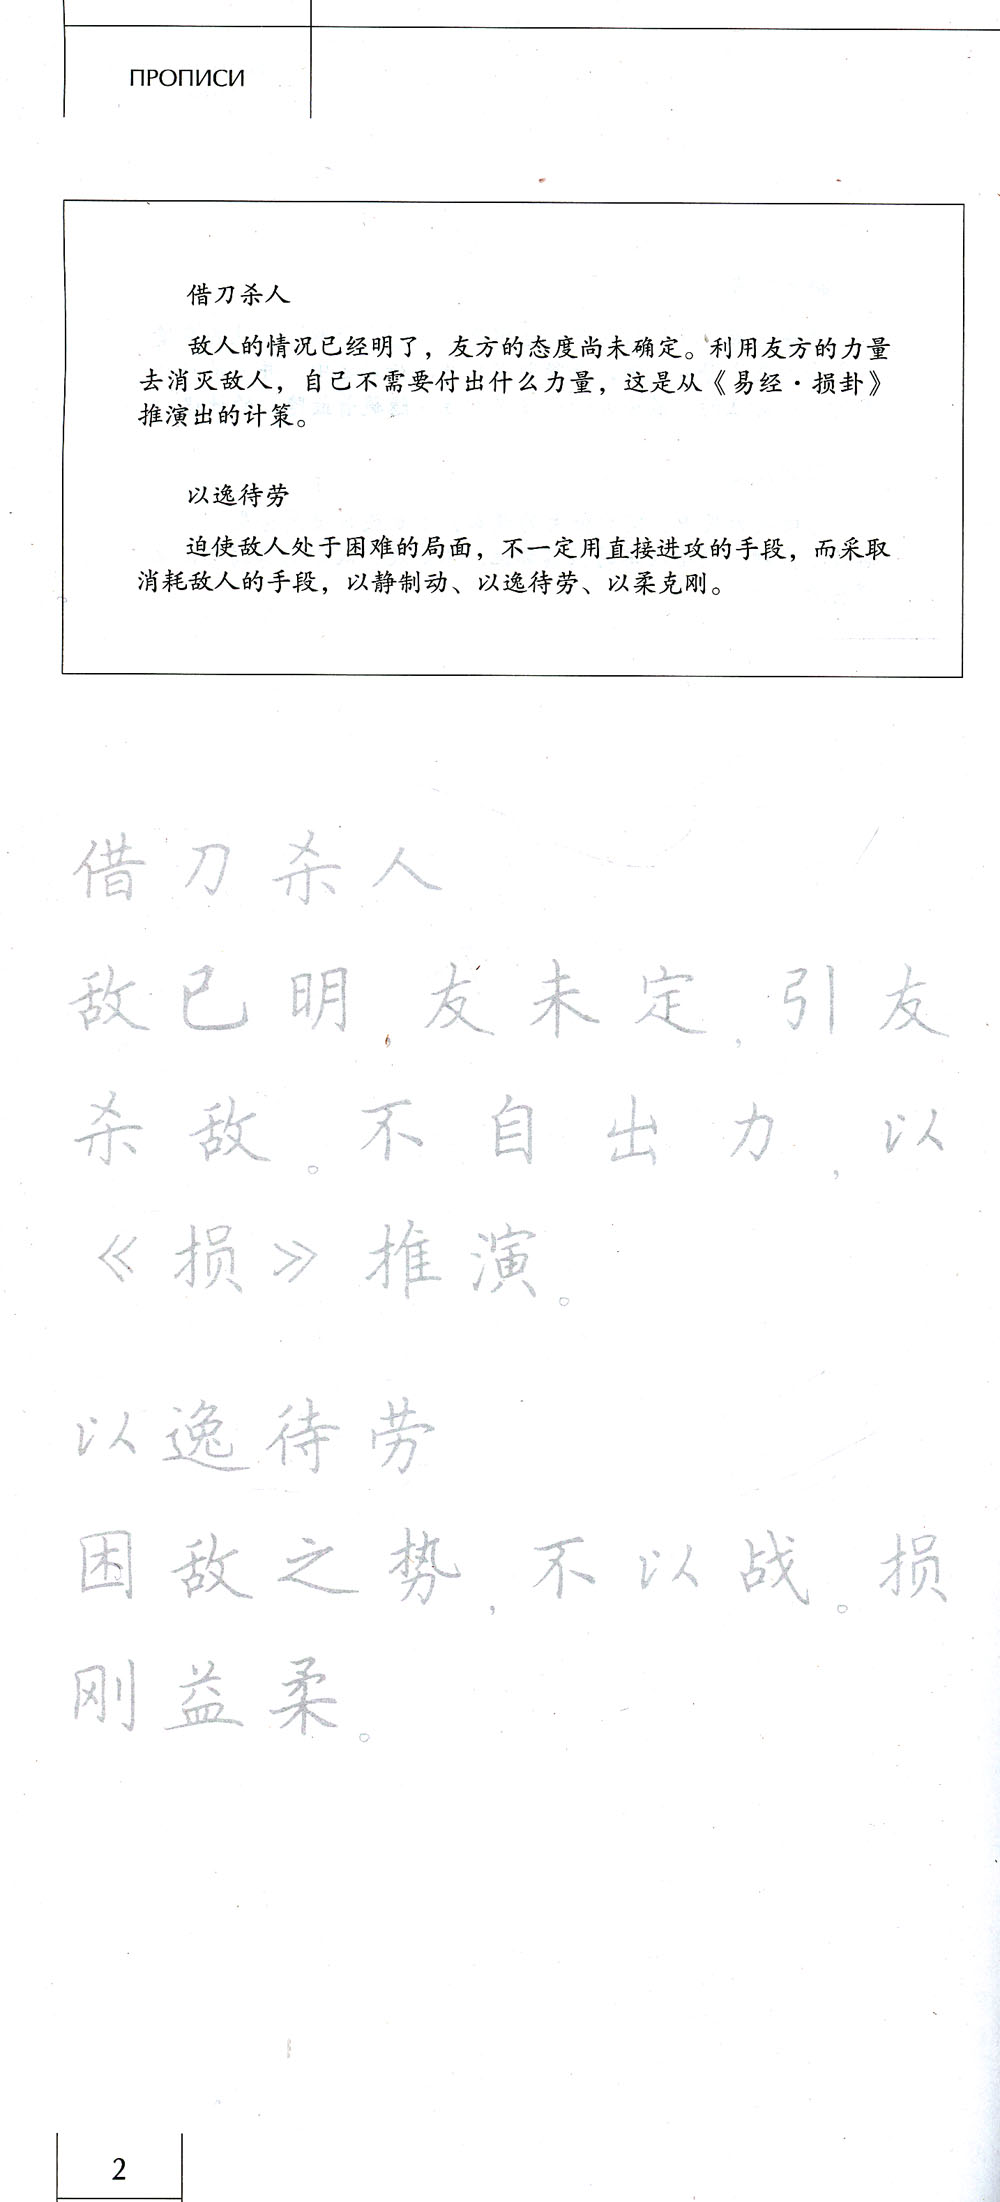 ПРОПИСИ
借刀杀人
敌人的情况已经明了，友方的态度尚未确定。利用友方的力量
去消灭敌人，自己不需要付出什么力量，这是从《易经·损卦》
推演出的计策。
以逸待劳
迫使敌人处于困难的局面，不一定用直接进攻的手段，而采取
消耗敌人的手段，以静制动、以逸待劳、以柔克刚。
借刀杀人
敌已明，友未定，引友
杀敌。不自出力，以
《损》推演。
以逸待劳
困敌之势，不以战。损
刚益柔。
2